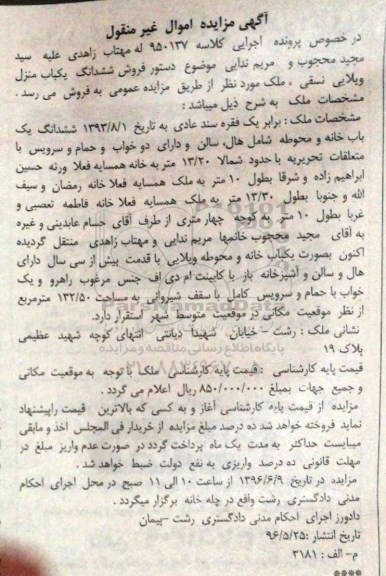 آگهی مزایده اموال غیر منقول
در خصوص پرونده اجرایی کلاسه ۹۵۰۱۳۷ له مهتاب زاهدی علیه سید
مجید محجوب و مریم ندایی موضوع دستور فروش ششدانگ یکباب منزل
ویلایی نسقی ، ملک مورد نظر از طریق مزایده عمومی به فروش می رسد .
مشخصات ملک به شرح ذیل میباشد :
مشخصات ملک : برابر یک فقره سند عادی به تاریخ ۱۳۹۳/۸/۱ ششدانگ یک
باب خانه و محوطه شامل هال، سالن و دارای دو خواب و حمام و سرویس با
متعلقات تحریریه با حدود شمالا ۱۳/۲۰ متر به خانه همسایه فعلا ورثه حسین
ابراهیم زاده و شرقا بطول ۱۰ متر به ملک همسایه فعلا خانه رمضان و سیف
الله و جنوبا بطول ۱۳/۳۰ متر به ملک همسایه فعلا خانه فاطمه تعصبی و
غربا بطول ۱۰ متر به کوچه چهار متری از طرف آقای حسام عابدینی و غیره
به آقای مجید محجوب خانمها مریم ندایی و مهتاب زاهدی منتقل گردیده
اکنون بصورت یکباب خانه و محوطه ویلایی با قدمت بیش از سی سال دارای
هال و سالن و آشپزخانه باز با کابینت ام دی اف جنس مرغوب راهرو و یک
خواب با حمام و سرویس کامل با سقف شیروانی به مساحت ۱۳۲/۵۰ مترمربع
از نظر موقعیت مکانی در موقعیت متوسط شهر استقرار دارد.
نشانی ملک : رشت - خیابان شهیدا دیانتی انتهای کوچه شهید عظیمی
پلاک ۱۹
قیمت پایه کارشناسی : قیمت پایه کارشناسی ملک با توجه به موقعیت مکانی
و جمیع جهات بمبلغ ۸۵۰/۰۰۰/۰۰۰ ریال اعلام می گردد .
مزایده از قیمت پایه کارشناسی آغاز و به کسی که بالاترین قیمت راپیشنهاد
نماید فروخته خواهد شد ده درصد مبلغ مزایده از خریدار فی المجلس اخذ و مابقی
میبایست حداکثر به مدت یک ماه پرداخت گردد در صورت عدم واریز مبلغ در
مهلت قانونی ده درصد واریزی به نفع دولت ضبط خواهد شد .
مزایده در تاریخ ۱۳۹۶/۶/۹ از ساعت ۱۰ الی ۱۱ صبح در محل اجرای احکام
مدنی دادگستری رشت واقع در چله خانه برگزار میگردد .
دادورز اجرای احکام مدنی دادگستری رشت –پیمان
تاریخ انتشار :۹۶/۵/۲۵
م- الف : ۳۱۸۱